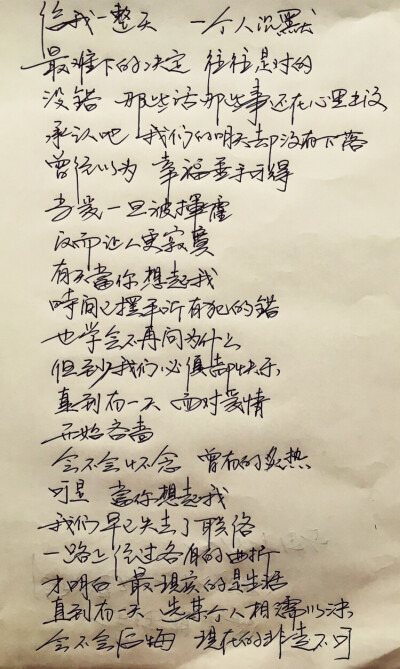 给我一整天 一个人沉默
最难下的决定 往往是对的
没错 那些话那些事还在心里头
承认吧 我们的明天却没有下落
曾经以为 幸福垂手可得
当爱一旦被揮霍
反而让人更寂寞
有天當你想起我
時间已摆平所有犯的错
也学会不再问为什么
但至少我们必须都快乐
直到有一天 面对爱情
开始吝啬
会不会怀念 曾有的炙热
可是 當你想起我
我们早已失去了联络
一路上经过各自的曲折
才明白 最现实的是生活
直到有一天 选某个人相濡以沫
会不会后悔 现在的非走不可